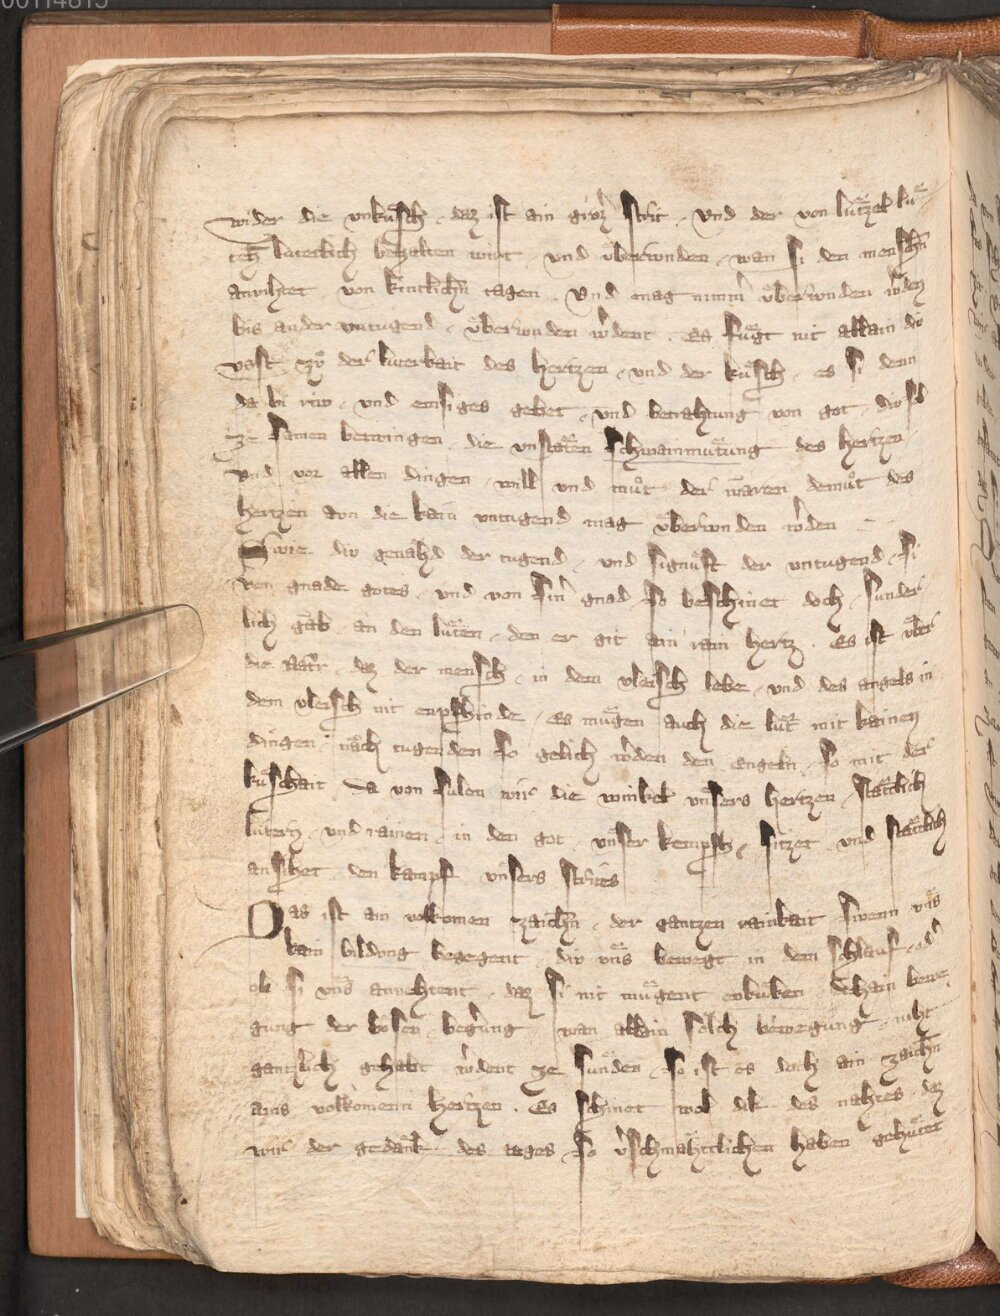 00114815
wider die vnkùsch . daz ist ain groz strit . Vnd der von lùtzel lù
ten luterlich behalten wirt . vnd ùberwnden . wan si den menschn
anvihtet von kintlichn tagen . Vnd mag nimm ùberwnden wˀden
bis ander vntugend . ùberwnden wˀdent . Es fùgt nit allain dù
vast zů der luterkait des hertzen . vnd der kùsch . es si denn
da bi riw . vnd emsiges gebet . vnd betrahtung von got . diu sol
ze samen betwingen . die vnstäten schwaimmùtung des hertzen
vnd vor allen dingen . will vnd můt der waren demůt des
hertzen an die kain vntugend mag ùberwnden wˀden
Swie diu genahd der tugend . vnd signuft der vntugend . si
von gnade gotes . vnd von sinˀ gnad . so beschinet doch . sunder
lich gab . an den lùten . den er git ain rain hertz . Es ist ùber
die natˀr . daz der mensch . in dem vleisch lebe . vnd des angels in
dem vleisch nit enpfhinde . Es mùgen auch die lùt mit kainen
dingen . nach tugenden so gelich wˀden den engeln . so mit der
kùschait . Da von sulen wir die winkel vnsers hertzen stätklich
lutern . vnd rainen . in den got . vnser kempfh . sitzet . vnd stätklich
ansihet den kampf vnsers strites
Das ist ain volkomen zaichn . der gantzen rainkait swenn vns
kain bildung begegent . diu vns bewegt in dem schlauf . odˀ
ob si vns anvehtent . daz si nit mùgent erkuken dehain bewe
gung der bösen begrung . wan allain sölch bewegung . niht
gantzlich gehabt wˀdent ze sunden . so ist es doch ain zaichn
ains volkomenn hertzen . Es schinet wol dik des nahtes . daz
wir der gedänk des tages so vˀschmahtlichen haben gehùtet